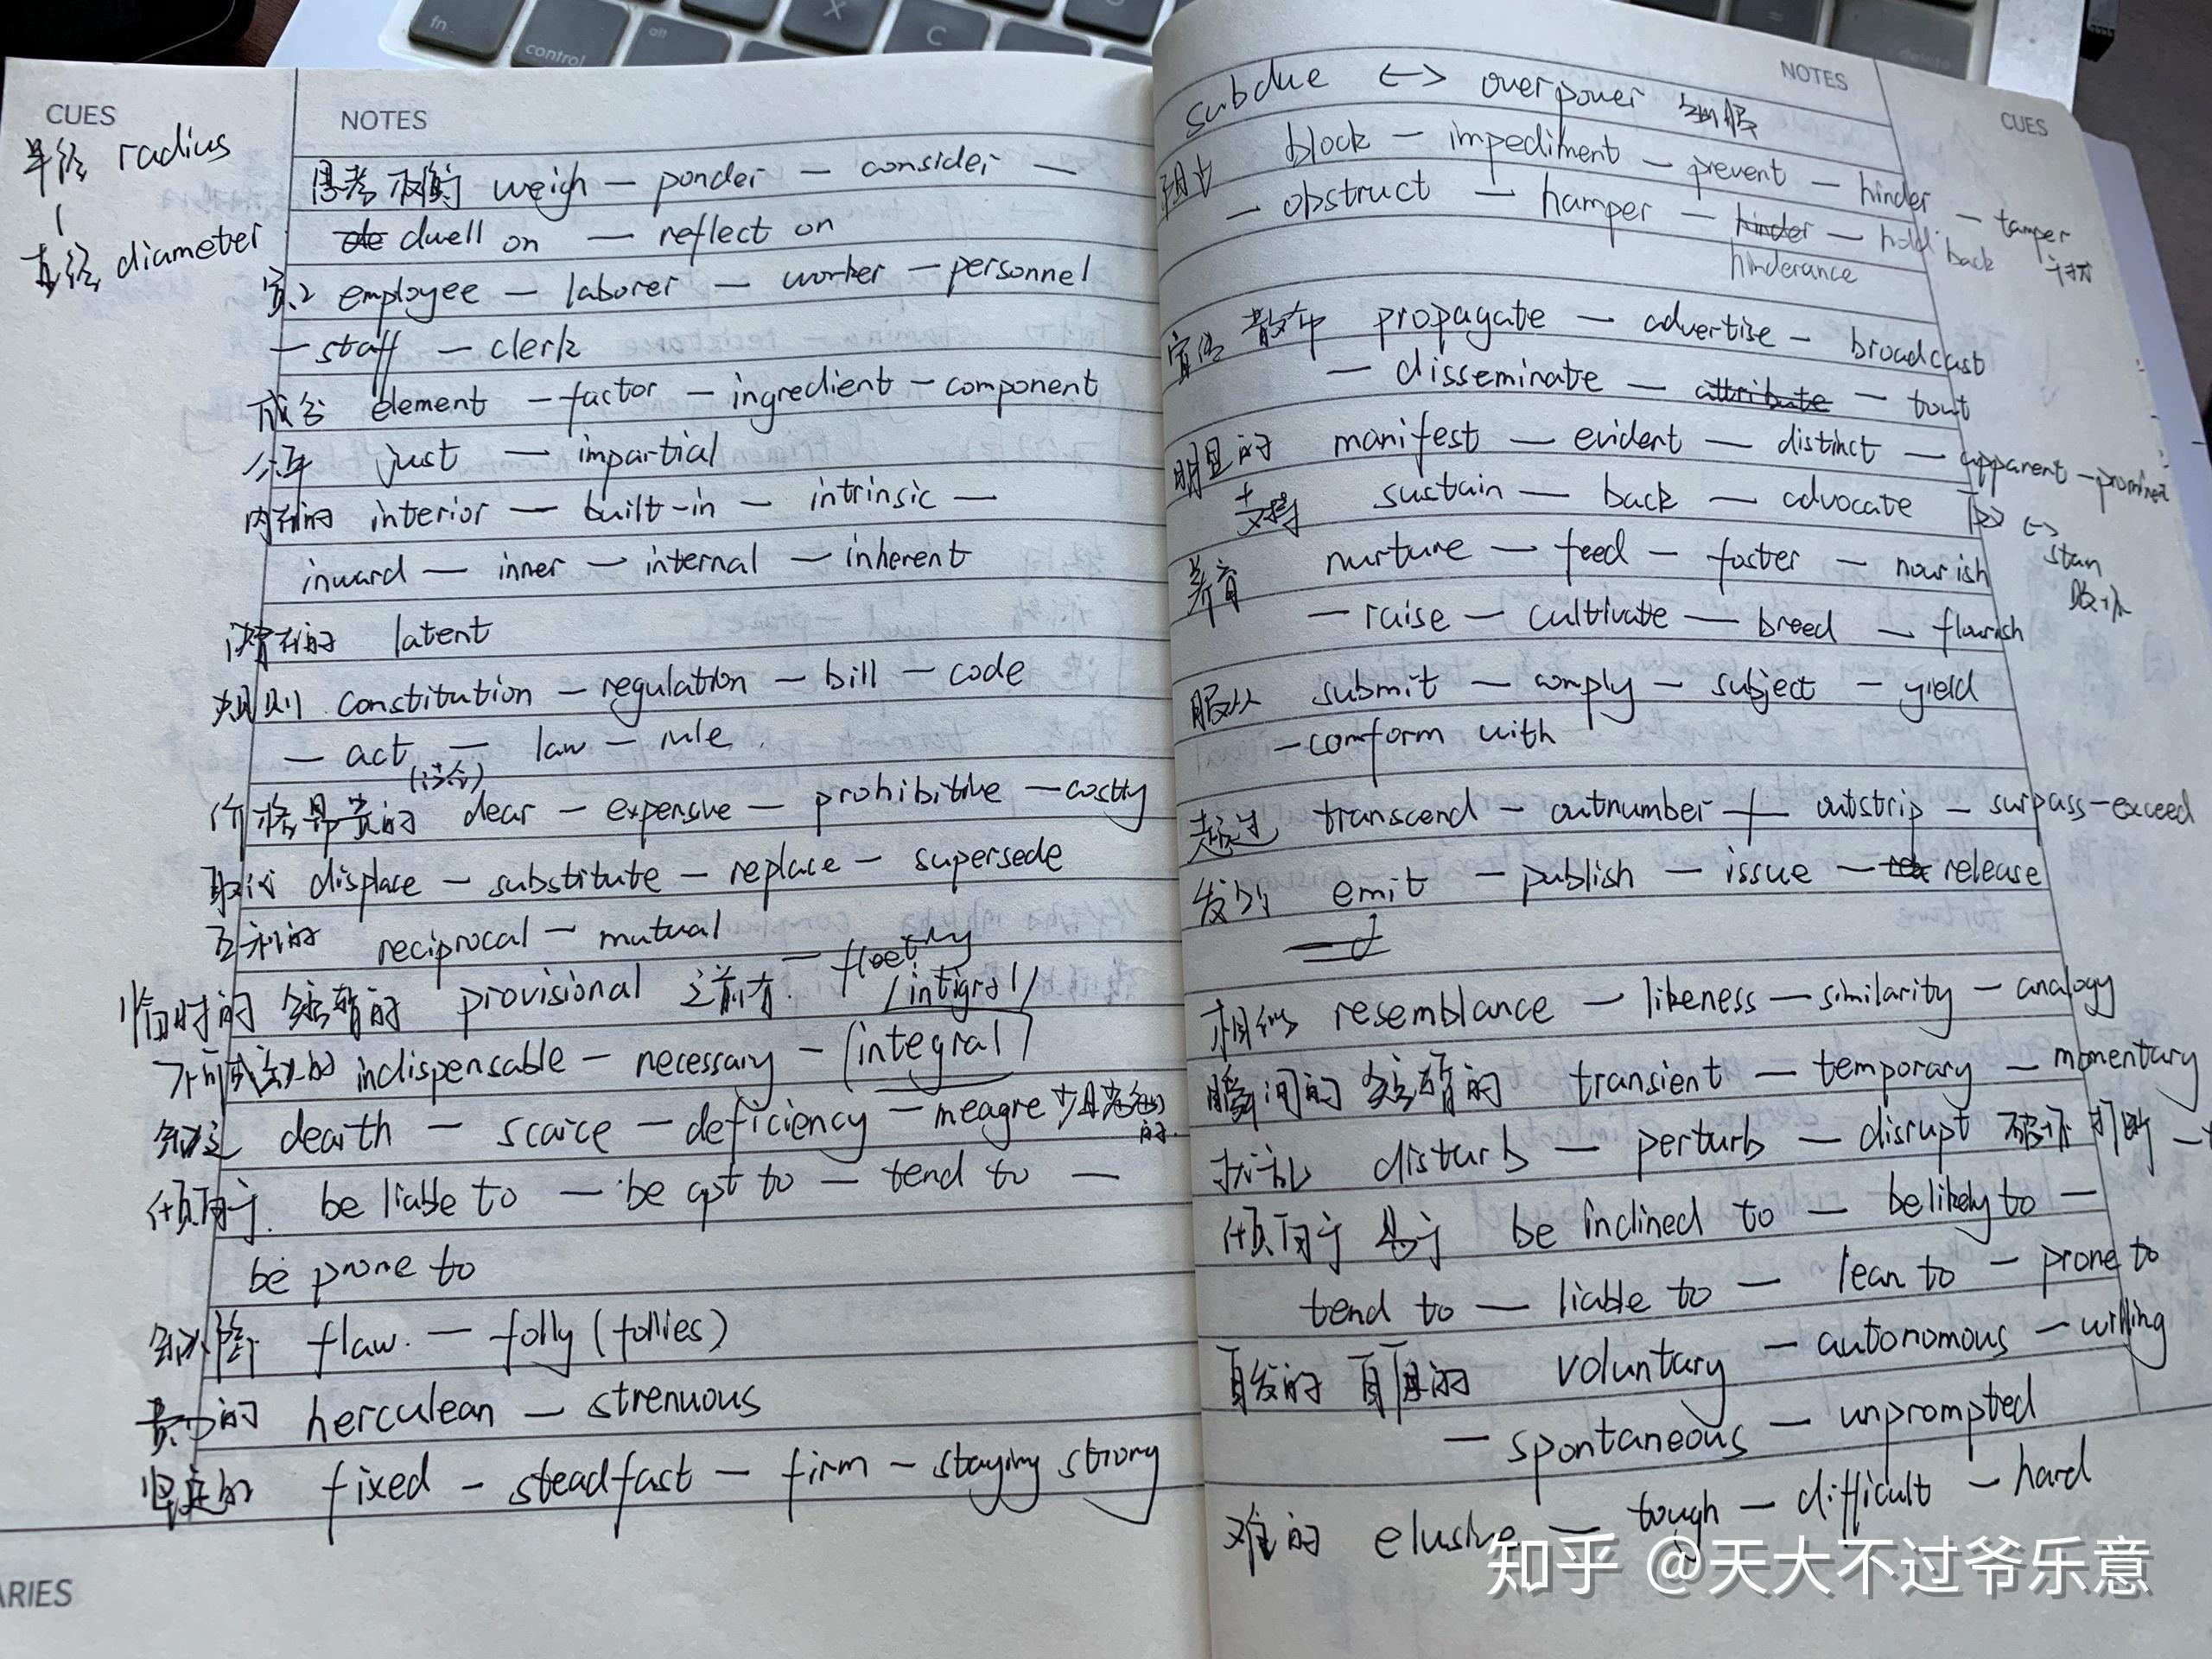 fn
control
alt
X
C
delete
CUES
NOTES
半径 radius
直径 diameter
思考 权衡 weigh — ponder — consider —
dwell on — reflect on
员工 employee — laborer — worker — personnel
— staff — clerk
成分 element — factor — ingredient — component
公平 just — impartial
内在的 interior — built-in — intrinsic —
inward — inner — internal — inherent
潜在的 latent
规则 constitution — regulation — bill — code
— act — law — rule
(法令)
价格昂贵的 dear — expensive — prohibitive — costly
取代 displace — substitute — replace — supersede
互利的 reciprocal — mutual
临时的 短暂的 provisional 之前有. —
/intigral/
不可或缺的 indispensable — necessary — (integral)
缺乏 dearth — scarce — deficiency — meagre
倾向于. be liable to — be apt to — tend to —
be prone to
缺陷 flaw. — folly (follies)
费力的 herculean — strenuous
坚定的 fixed — steadfast — firm — staying strong
ARIES
NOTES
CUES
subdue <-> overpower 征服
阻止 block — impediment — prevent — hinder — tamper
— obstruct — hamper — hinder — hold back
hinderance
宣传 散布 propagate — advertise — broadcast
— disseminate — attribute — tout
明显的 manifest — evident — distinct — apparent — prominent
支持 sustain — back — advocate
<-> stain
养育 nurture — feed — foster — nourish
— raise — cultivate — breed — flourish
服从 submit — comply — subject — yield
— comform with
超过 transcend — outnumber — outstrip — surpass — exceed
发出 emit — publish — issue — release
相似 resemblance — likeness — similarity — analogy
瞬间的 短暂的 transient — temporary — momentary
扰乱 disturb — perturb — disrupt 破坏 打断
倾向于 易于 be inclined to — be likely to —
tend to — liable to — lean to — prone to
自发的 自愿的 voluntary — autonomous — willing
— spontaneous — unprompted
难的 elusive — tough — difficult — hard
知乎 @天大不过爷乐意